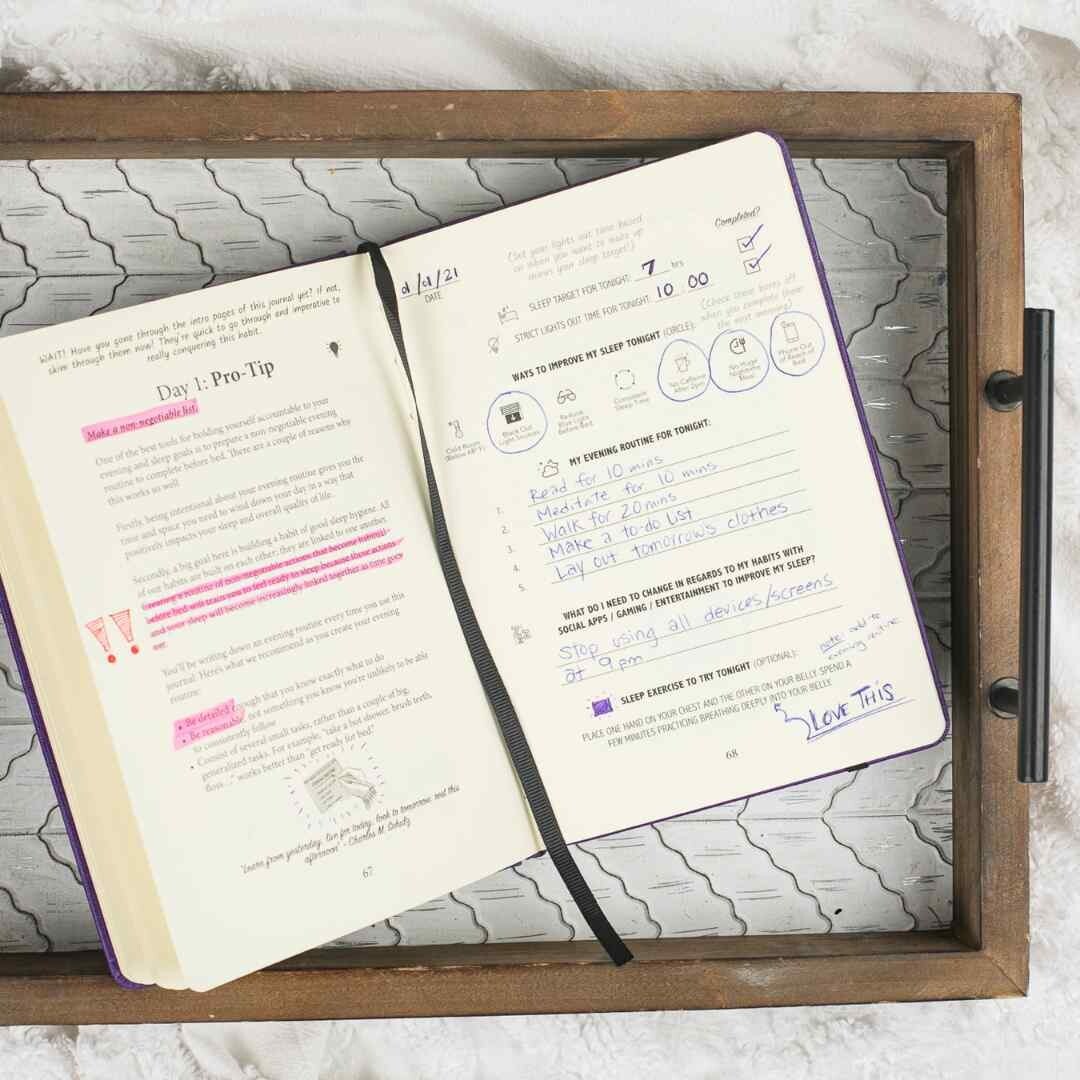 WAIT! Have you gone through the intro pages of this journal yet? If not,
skive through them now! They're quick to go through and imperative to
really conquering this habit.
Day 1: Pro-Tip
Make a non-negotiable list.
One of the best tools for holding yourself accountable to your
evening and sleep goals is to prepare a non-negotiable evening
routine to complete before bed. There are a couple of reasons why
this works so well.
Firstly, being intentional about your evening routine gives you the
time and space you need to wind down your day in a way that
positively impacts your sleep and overall quality of life.
Secondly, a big goal here is building a habit of good sleep hygiene. All
of our habits are built on each other; they are linked to one another.
Creating a routine of non-negotiable actions that become habit(s)
before bed will train you to feel ready to sleep because those actions
and your sleep will become increasingly linked together as time goes
over.
You'll be writing down an evening routine every time you use this
journal. Here's what we recommend as you create your evening
routine:
• Be detailed enough that you know exactly what to do
• Be reasonable, not something you're unlikely to be able
to consistently follow
• Consist of several small tasks, rather than a couple of big,
generalized tasks. For example, "take a hot shower, brush teeth,
floss..." works better than "get ready for bed!"
"Learn from yesterday, live for today, look to tomorrow, rest this
afternoon" - Charles M. Schulz
67
/01/21
DATE
(Set your lights out time based
on when you want to wake up
minus your sleep target!)
Completed?
SLEEP TARGET FOR TONIGHT: 7 hrs
STRICT LIGHTS OUT TIME FOR TONIGHT: 10 00
(Check these boxes off
when you complete them
the next morning)
WAYS TO IMPROVE MY SLEEP TONIGHT (CIRCLE):
Cold Room
(Below 68° F)
Black Out
Light Sources
Reduce
Blue Light
Before Bed
Consistent
Sleep Time
No Caffeine
After 2pm
No Huge
Nighttime
Meal
Phone Out
of Reach of
Bed
MY EVENING ROUTINE FOR TONIGHT:
1. Read for 10 mins
2. Meditate for 10 mins
3. Walk for 20 mins
4. Make a to-do list
5. Lay out tomorrows clothes
WHAT DO I NEED TO CHANGE IN REGARDS TO MY HABITS WITH
SOCIAL APPS / GAMING / ENTERTAINMENT TO IMPROVE MY SLEEP?
Stop using all devices/screens
at 9pm
note: add to
evening routine
SLEEP EXERCISE TO TRY TONIGHT (OPTIONAL):
PLACE ONE HAND ON YOUR CHEST AND THE OTHER ON YOUR BELLY. SPEND A
FEW MINUTES PRACTICING BREATHING DEEPLY INTO YOUR BELLY.
LOVE THIS
68